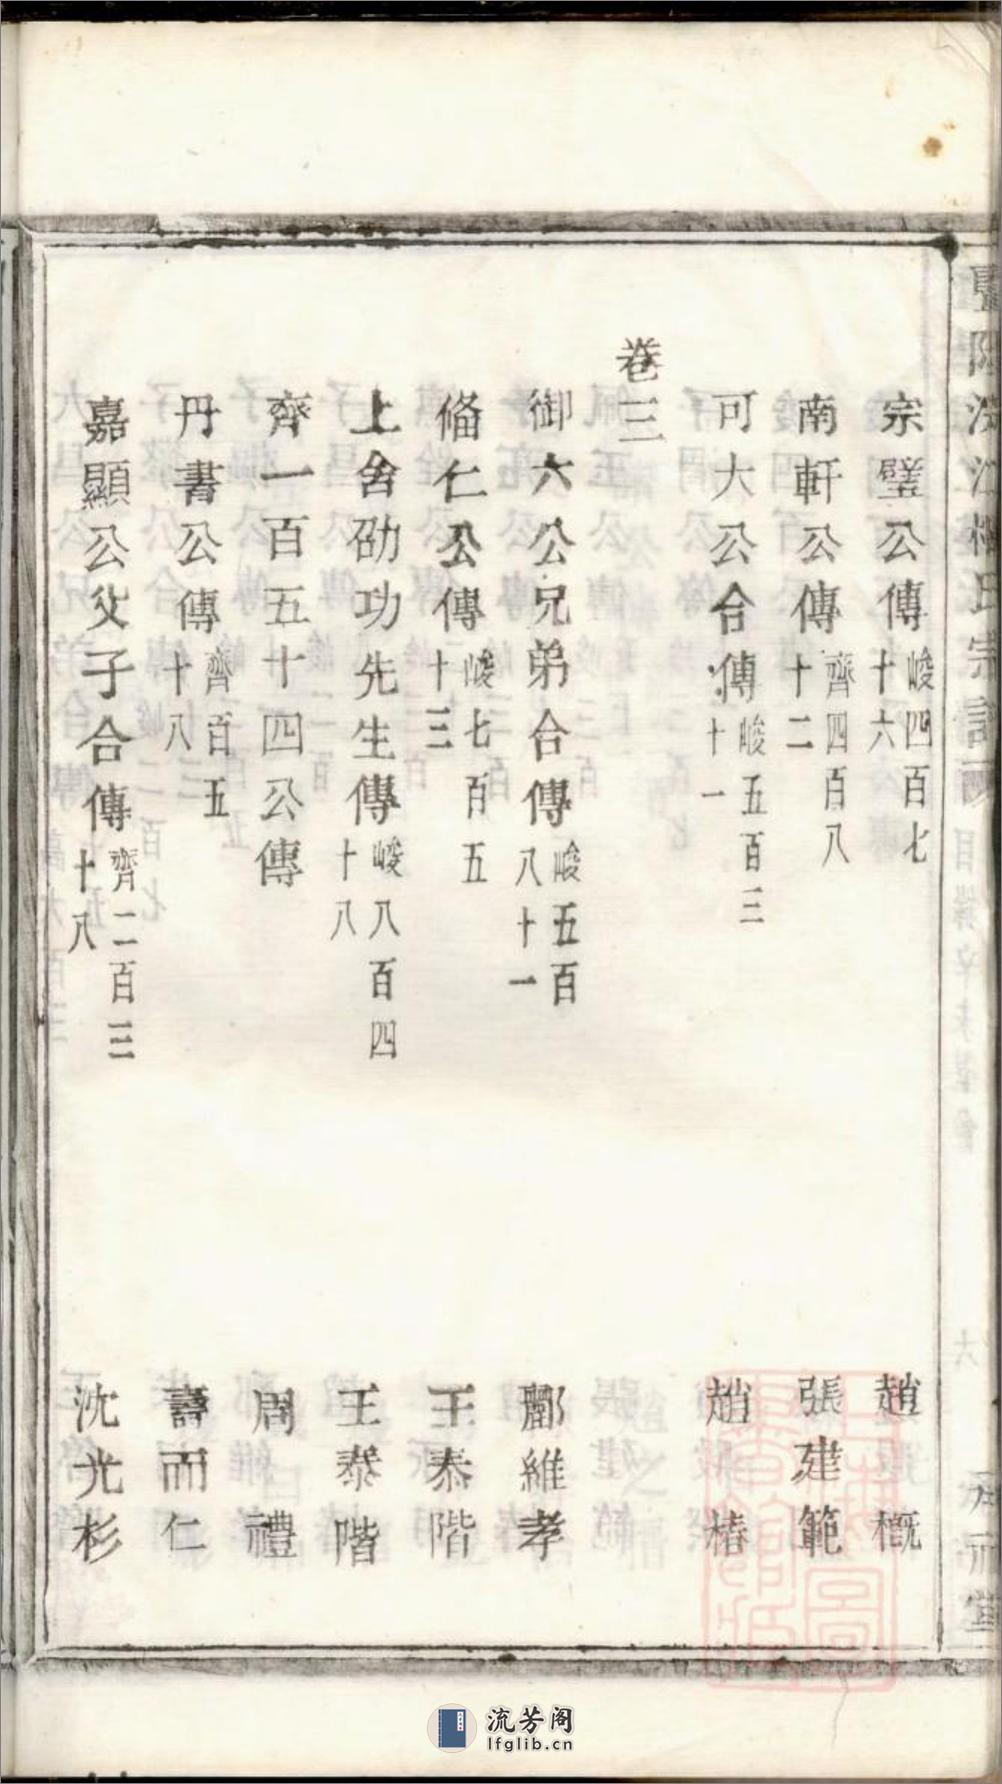 宗璧公傳 峻四百七十六 趙概
南軒公傳 齊四百八十二 張建範
可大公合傳 峻五百三十一 趙椿
卷三
御六公兄弟合傳 峻五百八十一 酈維孝
偹仁公傳 峻七百五十三 王泰階
上舍劭功先生傳 峻八百四十八 王泰階
齊一百五十四公傳 周禮
丹書公傳 齊百五十八 壽而仁
嘉顯公父子合傳 齊二百三十八 沈光杉
流芳阁
lfglib.cn